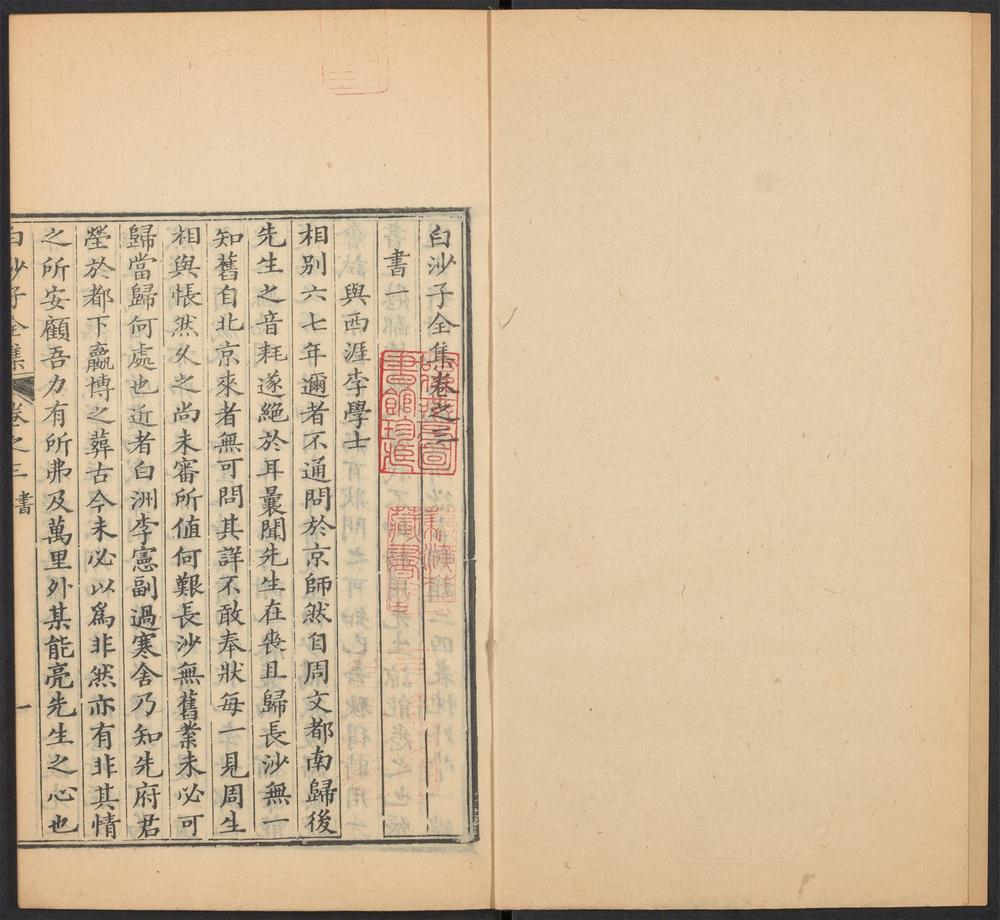 白沙子全集卷之三
書一
與西涯李學士
相別六七年邇者不通問於京師然自周文都南歸後
先生之音耗遂絕於耳曩聞先生在喪且歸長沙無一
知舊自北京來者無可問其詳不敢奉狀每一見周生
相與悵然久之尚未審所值何艱長沙無舊業未必可
歸當歸何處也近者白洲李憲副過寒舍乃知先府君
塋於都下嬴博之葬古今未必以爲非然亦有非其情
之所安顧吾力有所弗及萬里外某能亮先生之心也
白沙子全集 卷之三 書 一